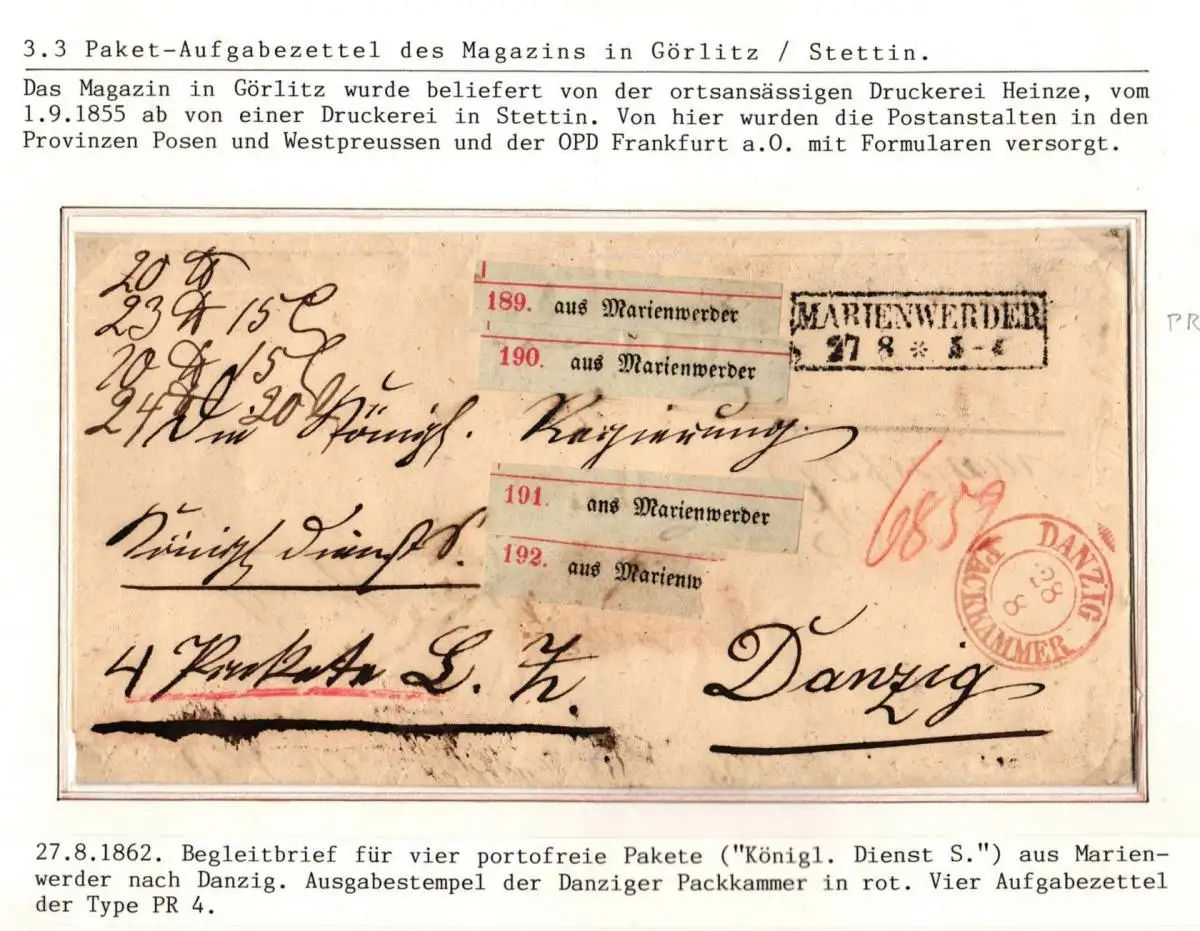 3.3 Paket-Aufgabezettel des Magazins in Görlitz / Stettin.
Das Magazin in Görlitz wurde beliefert von der ortsansässigen Druckerei Heinze, vom
1.9.1855 ab von einer Druckerei in Stettin. Von hier wurden die Postanstalten in den
Provinzen Posen und Westpreussen und der OPD Frankfurt a.O. mit Formularen versorgt.
20 ℔
23 ℔ 15
10 ℔ 15
24 20
189. aus Marienwerder
190. aus Marienwerder
MARIENWERDER
27 8 * 5-6
PR
Die Königl. Regierung
191. ans Marienwerder
192. aus Marienw
Königl Dienst S.
6859
DANZIG
28
8
PACKKAMMER
4 Packete
Danzig
27.8.1862. Begleitbrief für vier portofreie Pakete ("Königl. Dienst S.") aus Marien-
werder nach Danzig. Ausgabestempel der Danziger Packkammer in rot. Vier Aufgabezettel
der Type PR 4.